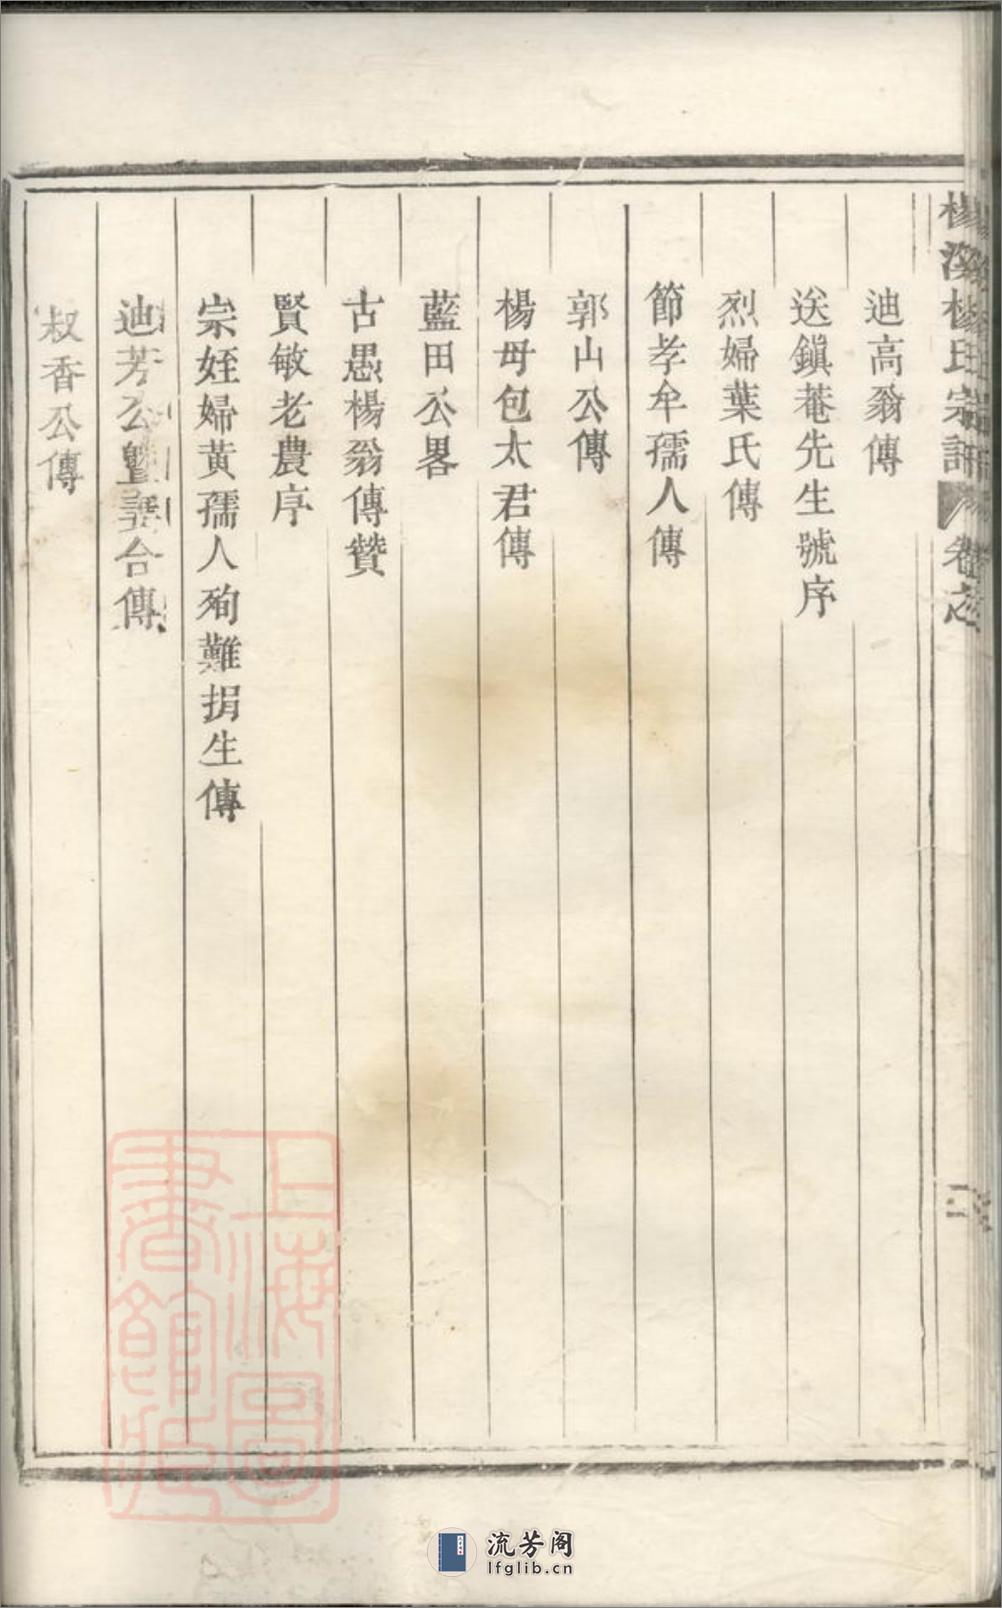 楊溪楊氏宗譜 卷之
迪高翁傳
送鎭菴先生號序
烈婦葉氏傳
節孝牟孺人傳
郭山公傳
楊母包太君傳
藍田公畧
古愚楊翁傳贊
賢敏老農序
宗姪婦黃孺人殉難捐生傳
迪芳公曁 合傳
叔香公傳
上海圖書館藏
流芳阁
lfglib.cn